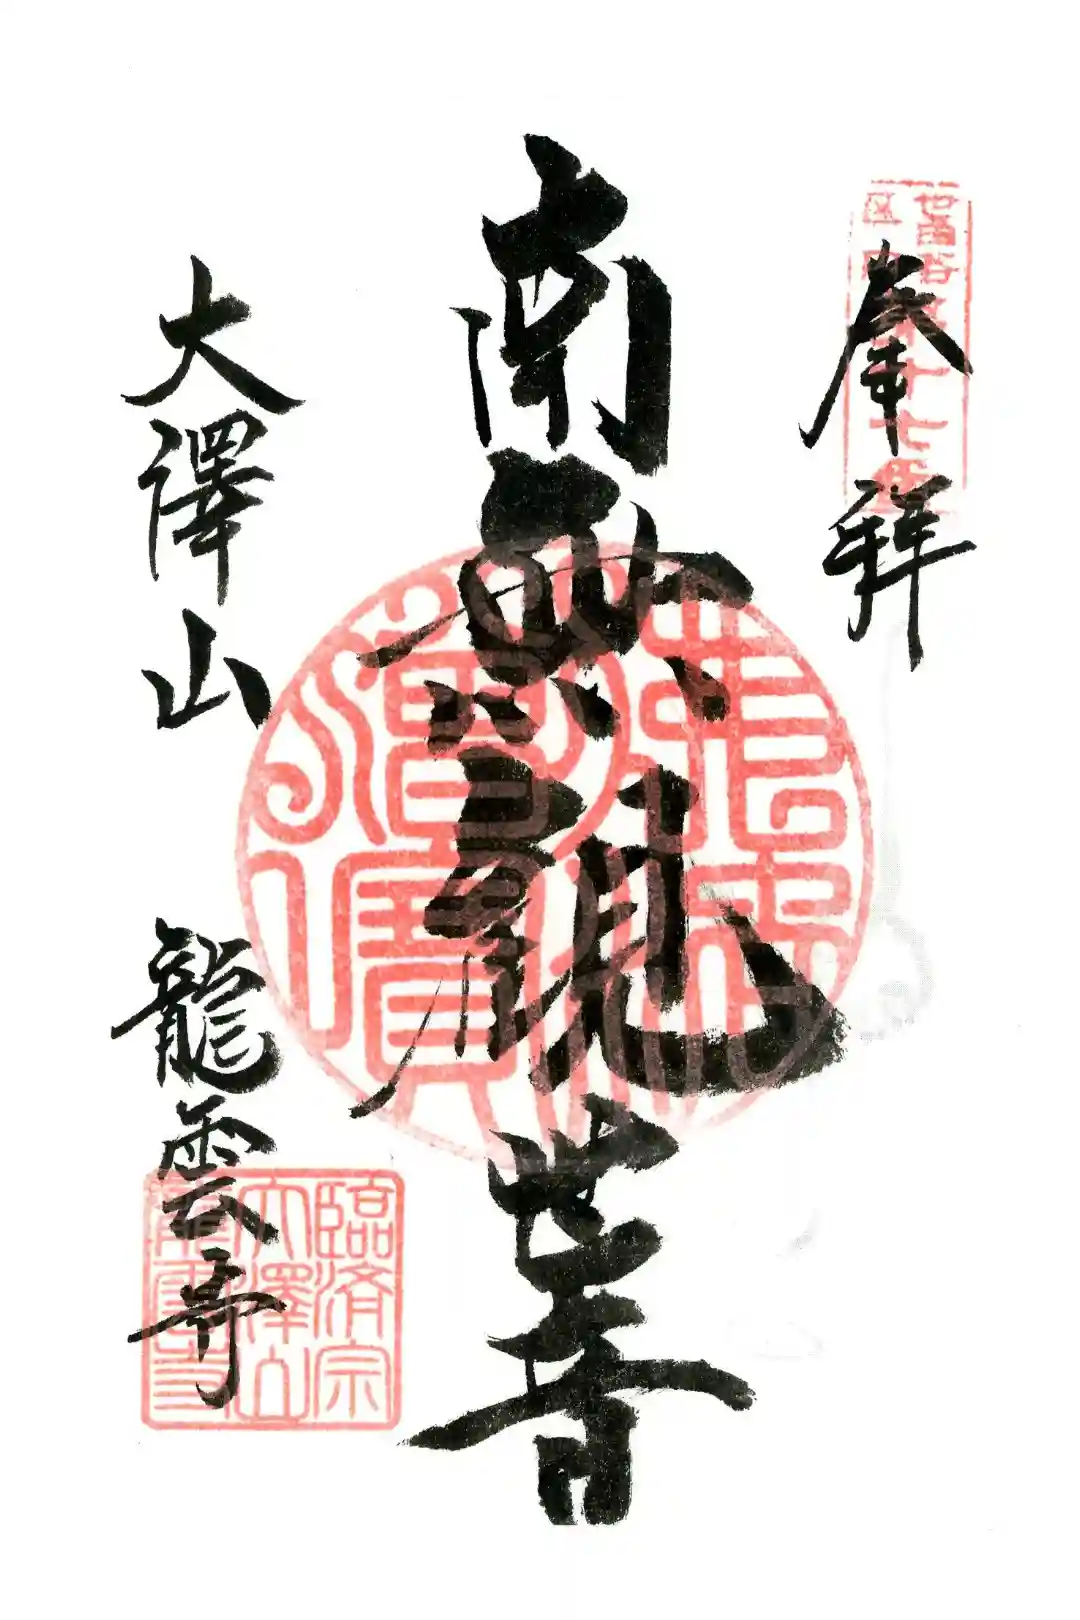 奉拜
南無観世音
大澤山 龍雲寺
臨済宗
大澤山
龍雲寺